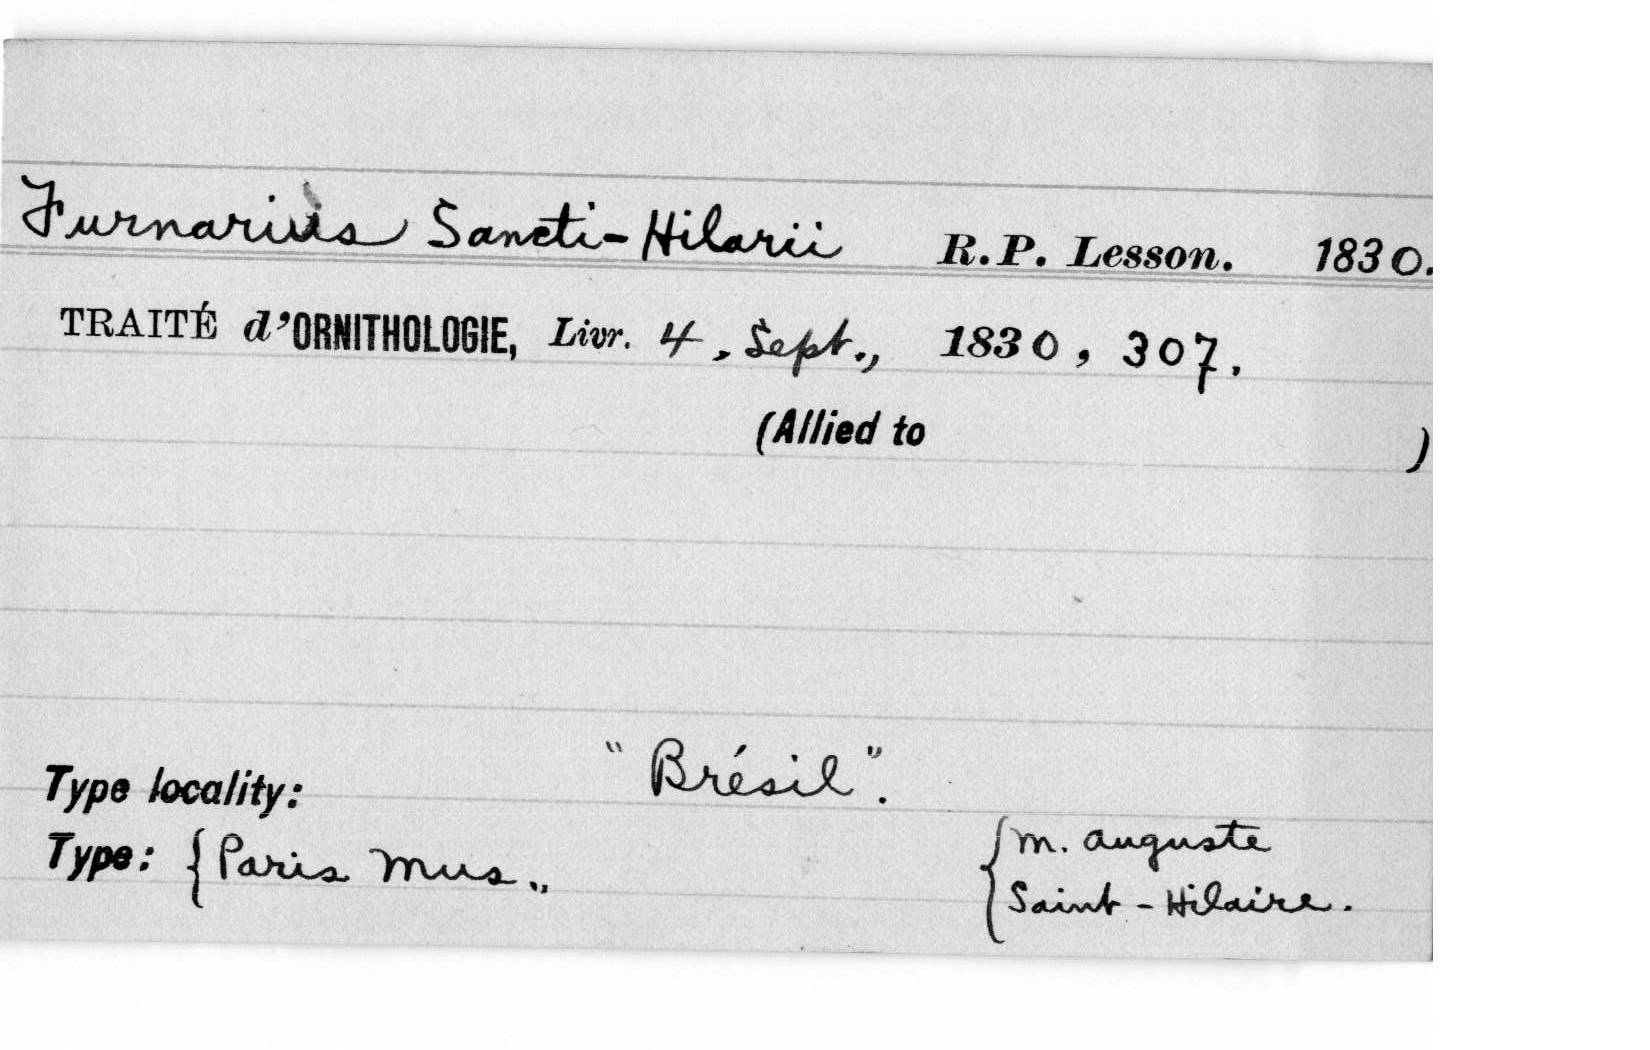 Furnarius Sancti-Hilarii R.P. Lesson. 1830.
TRAITÉ d'ORNITHOLOGIE, Livr. 4, Sept., 1830, 307.
(Allied to )
Type locality: "Brésil".
Type: { Paris Mus., { M. Auguste
Saint-Hilaire.